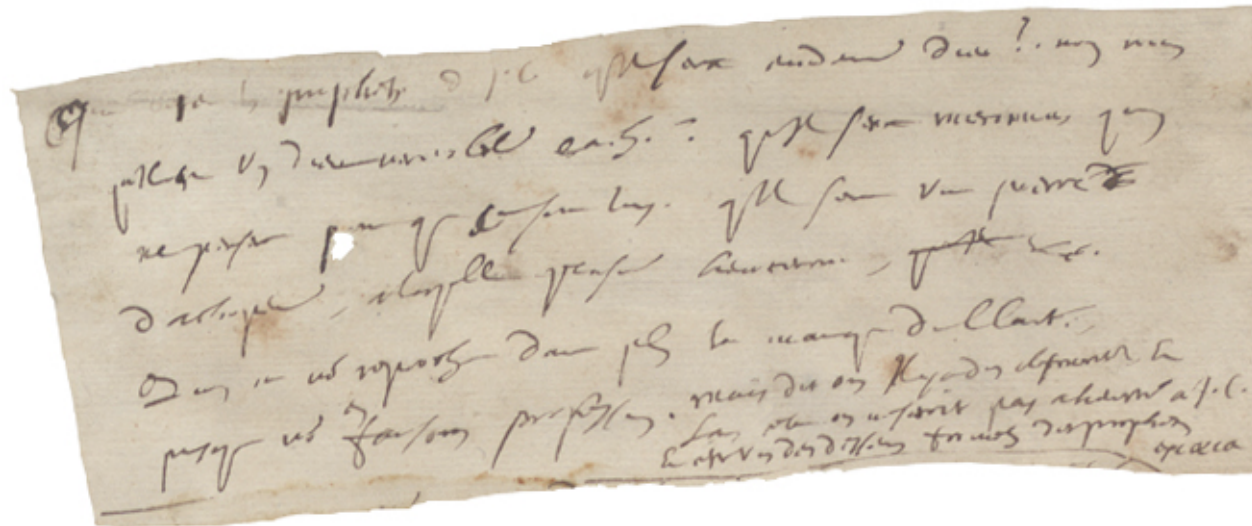 Que disent les prophetes de J.C. qu'il sera evidemment Dieu? non mais
qu'il est un Dieu veritablement caché. qu'il sera mesconnu, qu'on
ne pensera point que ce soit luy. qu'il sera une pierre
d'achopement, a laquelle plusieurs heurteront, etc.
Qu'on ne nous reproche donc plus le manque de clarté
puisque nous en faisons profession. mais dit on il y a des obscuritez et
sans cela on ne seroit pas aheurté à J.C.
et c'est un des desseins formels des prophetes
excæca